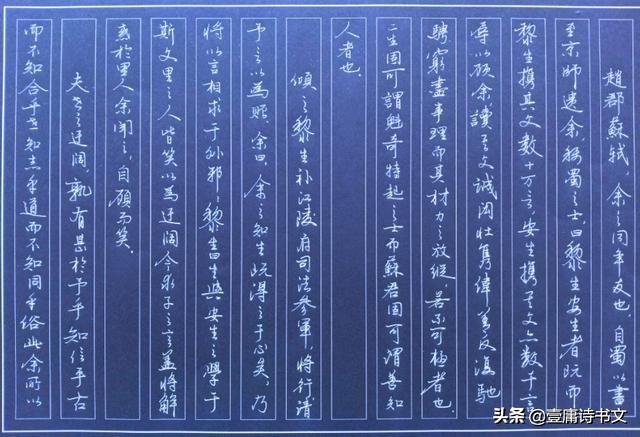 趙郡蘇軾，余之同年友也。自蜀以書
至京師遺余，稱蜀之士，曰黎生安生者。既而
黎生攜其文數十萬言，安生攜其文亦數千言，
辱以顧余。讀其文，誠閎壯雋偉，善反復馳
騁，窮盡事理，而其材力之放縱，若不可極者也。
二生固可謂魁奇特起之士，而蘇君固可謂善知
人者也。
頃之，黎生補江陵府司法參軍，將行，請
予言以為贈。余曰：余之知生，既得之于心矣，乃
將以言相求于外邪？黎生曰：生與安生之學于
斯文，里之人皆笑以為迂闊。今求子之言，蓋將解
惑於里人。余聞之，自顧而笑。
夫世之迂闊，孰有甚於予乎？知信乎古
而不知合乎世，知志乎道而不知同乎俗，此余所以
头条 @壹庸诗书文